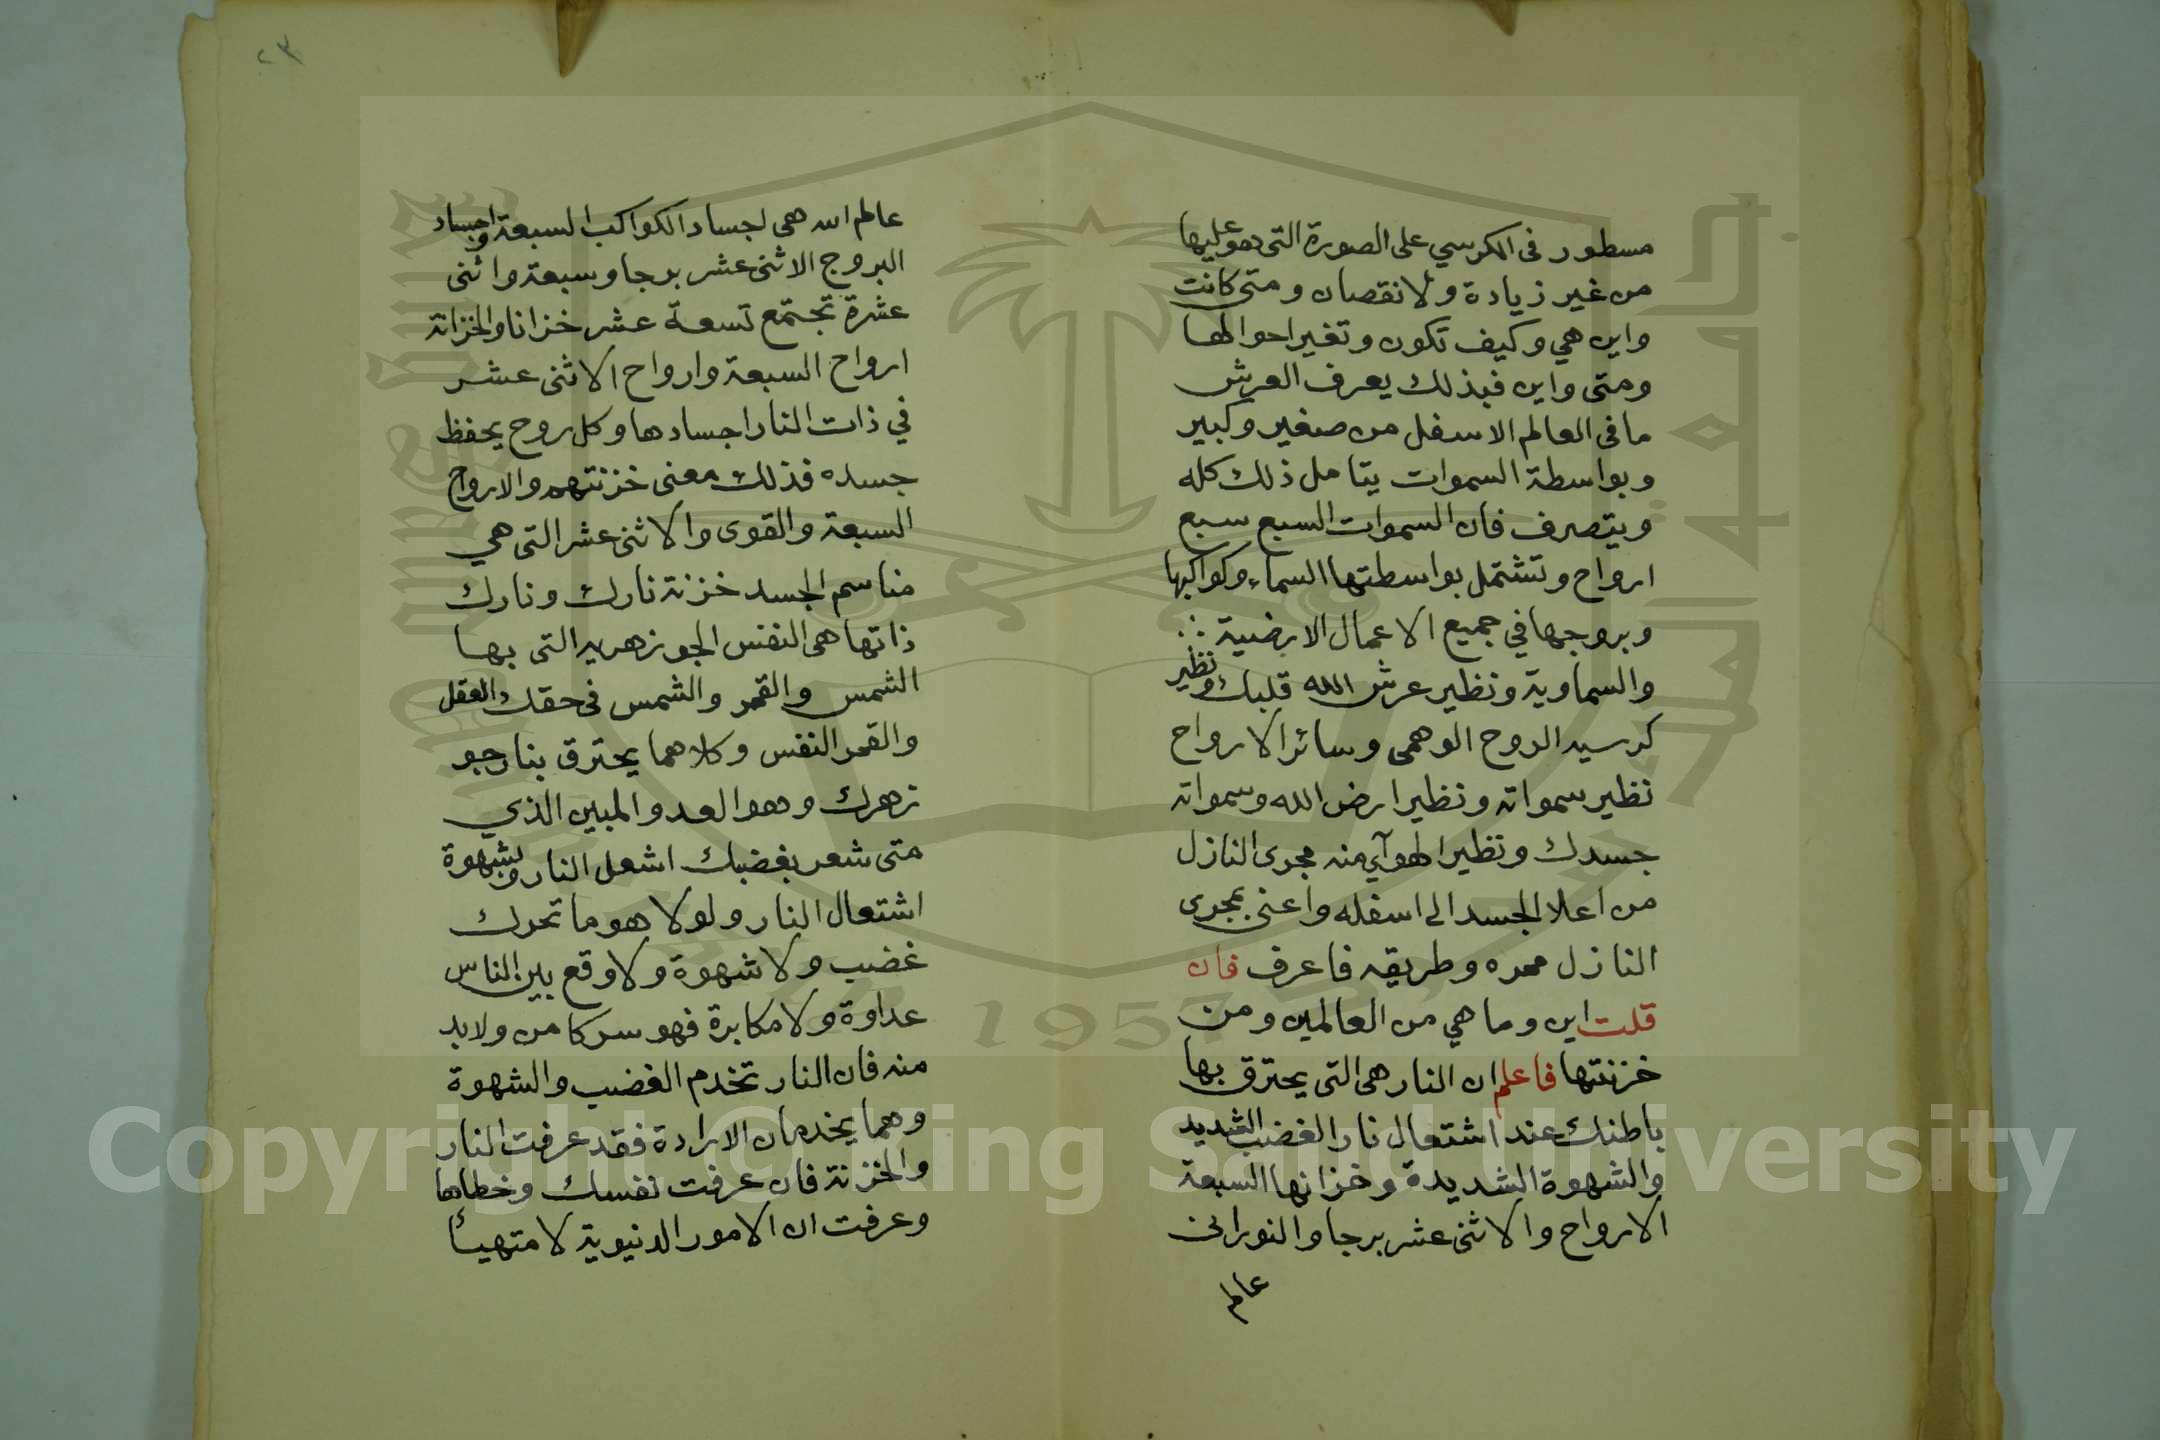 مسطور فى الكرسي على الصورة التى هو عليها
من غير زيادة ولا نقصان ومتى كانت
واين هي وكيف تكون وتغير احوالها
ومتى واين فبذلك يعرف العرش
ما فى العالم الاسفل من صغير وكبير
وبواسطة السموات يتامل ذلك كله
ويتصرف فان السموات السبع سبع
ارواح وتشتمل بواسطتها السماء وكواكبها
وبروجها في جميع الاعمال الارضية
والسماوية ونظير عرش الله قلبك ونظير
كرسيه الروح الوهمى وسائر الارواح
نظير سمواته ونظير ارض الله وسمواته
جسدك ونظير الهوآي منه مجرى النازل
من اعلا الجسد الى اسفله واعنى بمجرى
النازل ممره وطريقه فاعرف فان
قلت اين وما هي من العالمين ومن
خزنتها فاعلم ان النار هى التى يحترق بها
باطنك عند اشتعال نار الغضب الشديد
والشهوة الشديدة وخزانها السبعة
الارواح والاثنى عشر برجا والنورانى
عالم
٢٣
عالم الله هى اجساد الكواكب السبعة واجساد
البروج الاثنى عشر برجا وسبعة واثنى
عشرة تجتمع تسعة عشر خزانا والخزانة
ارواح السبعة وارواح الاثنى عشر
في ذات النار اجسادها وكل روح يحفظ
جسده فذلك معنى خزنتهم والارواح
السبعة والقوى والاثنى عشر التى هي
مناسم الجسد خزنة نارك ونارك
ذاتها هى النفس الجوزهريه التى بها
الشمس والقمر والشمس فى حقك العقل
والقمر النفس وكلاهما يحترق بنار جو
زهرك وهو العدو المبين الذي
متى شعر بغضبك اشعل النار وبشهوة
اشتعال النار ولولا هو ما تحرك
غضب ولا شهوة ولا وقع بين الناس
عداوة ولا مكابرة فهو سر كامن ولابد
منه فان النار تخدم الغضب والشهوة
وهما يخدمان الارادة فقد عرفت النار
والخزنة فان عرفت نفسك وخطاها
وعرفت ان الامور الدنيوية لا متهيأ
1957
Copyright © King Saud University